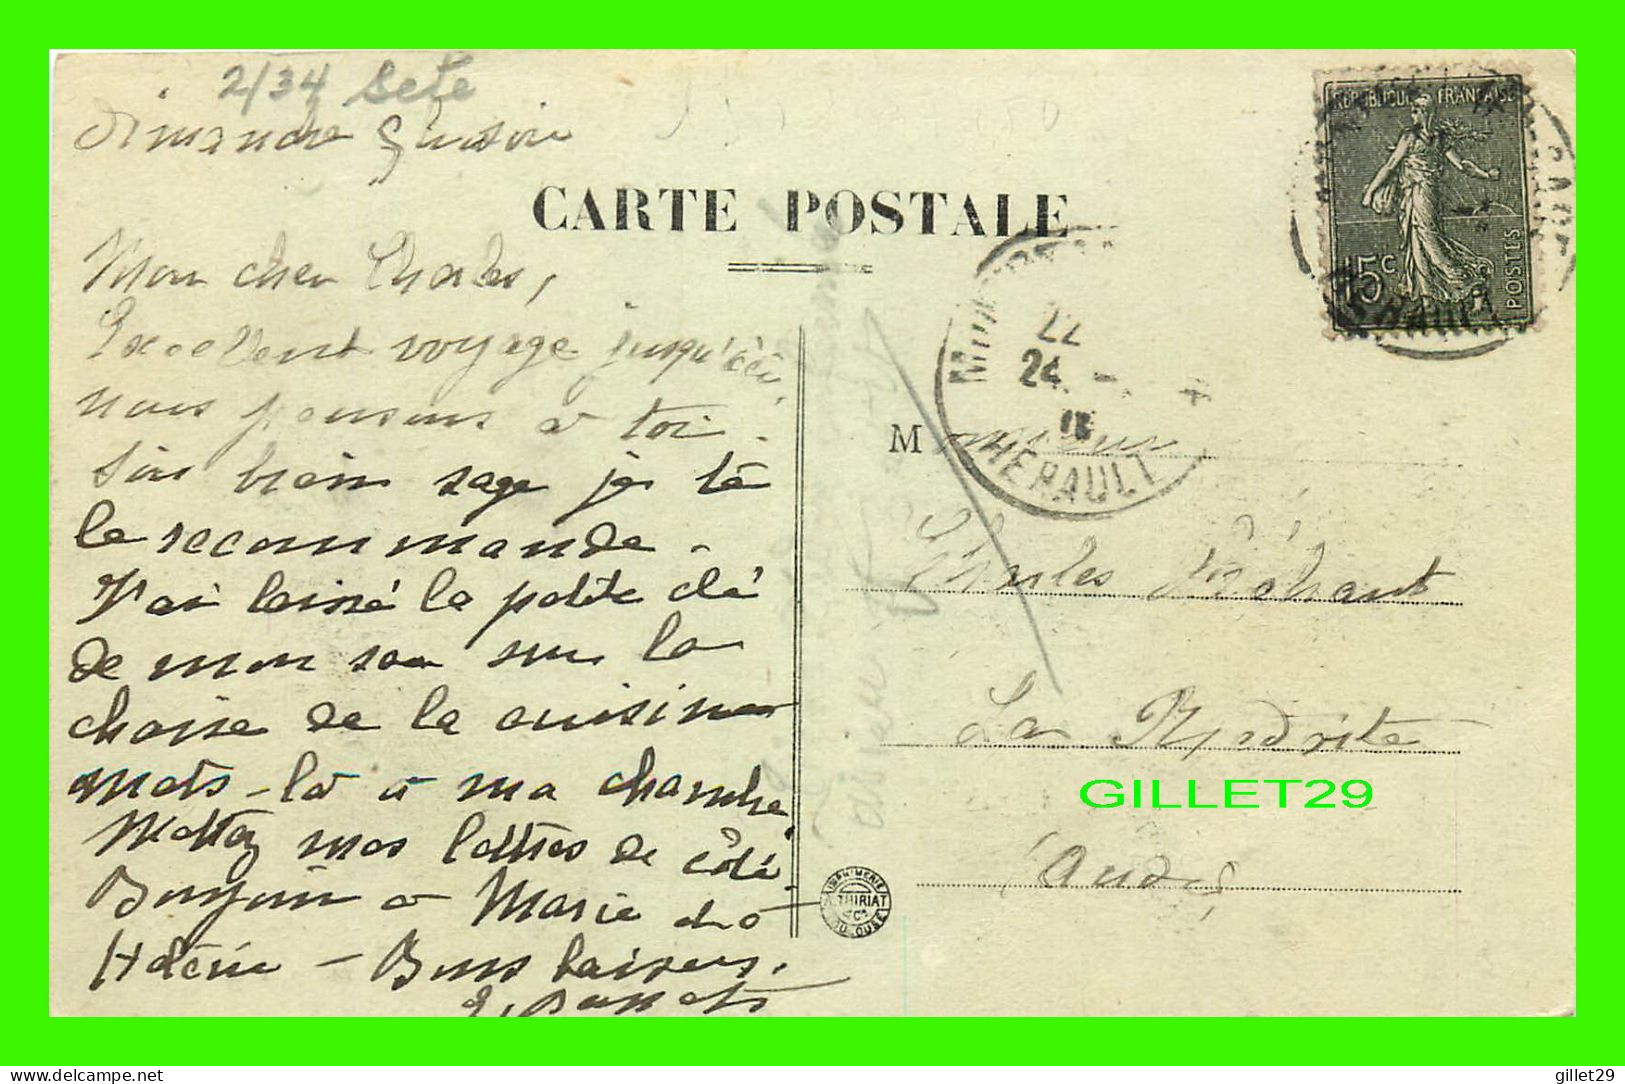 2/34 Sete
Dimanche
CARTE POSTALE
Mon cher Charles,
Excellent voyage jusqu'ici,
nous pensons à toi.
Sois bien sage je te
le recommande.
J'ai laissé la petite clé
de mon sac sur la
chaise de la cuisine
mets-la à ma chambre
Mettez mes lettres de côté.
Bonjour à Marie
Bons baisers.
REPUBLIQUE FRANÇAISE
15c
POSTES
HERAULT
22
24
HERAULT
M onsieur
Charles
La Redorte
Aude
IMPRIMERIE
THIRIAT
& Cie
TOULOUSE
GILLET29
delcampe.net
gillet29